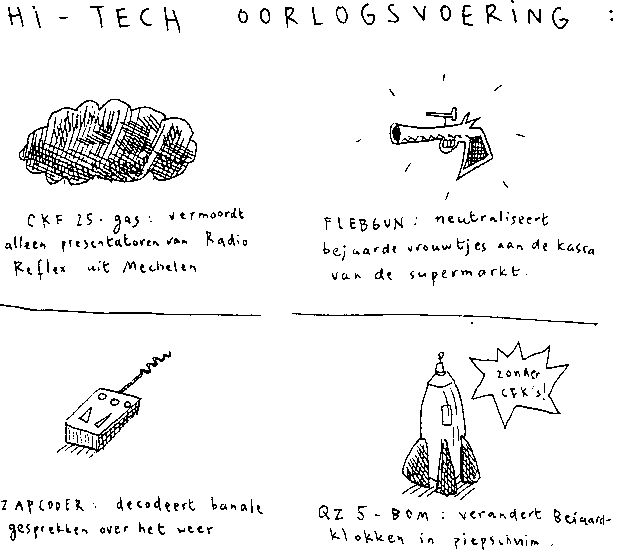 Hi-TECH OORLOGSVOERiNG :
CKF 25-gas : vermoordt
alleen presentatoren van Radio
Reflex uit Mechelen
FLEBGUN : neutraliseert
bejaarde vrouwtjes aan de kassa
van de supermarkt.
ZAPCODER : decodeert banale
gesprekken over het weer
zonder
CFK's!
QZ 5-BOM : verandert Beiaard-
klokken in piepschuim.